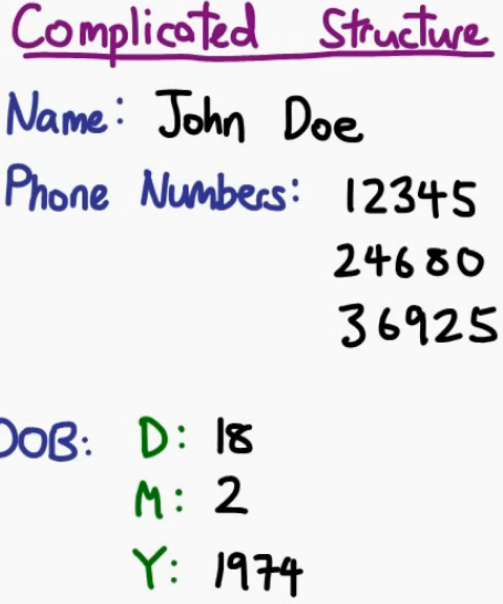 Complicated Structure
Name: John Doe
Phone Numbers: 12345
24680
36925
DOB: D: 18
M: 2
Y: 1974